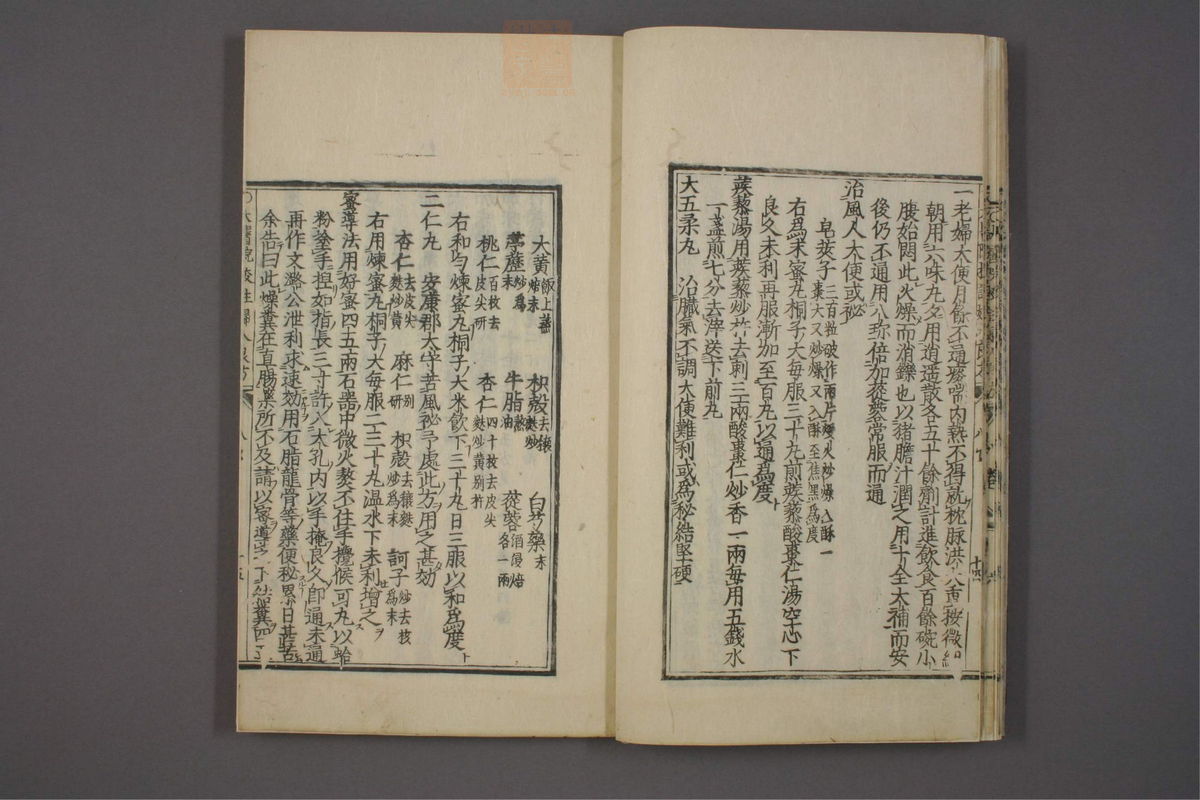 一老婦大便月餘不通痰喘內熱不得就枕脉洪大重按微細
朝用六味丸夕用逍遙散各五十餘劑計進飲食百餘碗小
腹始悶此火燥而消鑠也以猪膽汁潤之用十全大補而安
後仍不通用八珍倍加蓯蓉常服而通
治風人大便或祕
皂莢子三百粒破作兩片慢火炒燥入酥一
棗大又炒燥又入酥至焦黑爲度
右爲末蜜丸桐子大每服三十丸煎蒺藜酸棗仁湯空心下
良久未利再服漸加至百丸以通爲度
蒺藜湯用蒺藜炒杵去刺三兩酸棗仁炒香一兩每用五錢水
一盞煎七分去滓送下前丸
大五柔丸 治臟氣不調大便難利或爲秘結堅硬
大黃飯上蒸焙末 枳殼去穰麩炒 白芍藥末
葶藶炒爲末 牛脂熬油 蓯蓉酒浸焙各一兩
桃仁百枚去皮尖研 杏仁四十枚去皮尖麩炒黃別杵
右和勻煉蜜丸桐子大米飲下三十丸日三服以和爲度
二仁丸 安康郡太守苦風秘予處此方用之甚効
杏仁去皮尖麩炒黃 麻仁別研 枳殼去穰麩炒爲末 訶子炒去核爲末
右用煉蜜丸桐子大每服二三十丸溫水下未利增之
蜜導法用好蜜四五兩石器中微火熬不住手攪候可丸以蛤
粉塗手揑如指長三寸許入大孔內以手掩良久卽通未通
再作文潞公泄利求速効用石脂龍骨等藥便秘累日甚苦
余告曰此燥糞在直腸藥所不及請以蜜導之下結糞四五